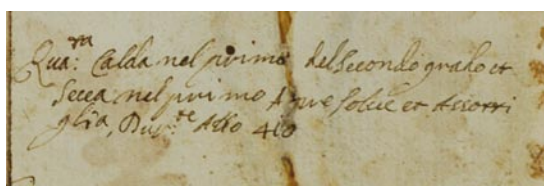 Qua:ra Calda nel primo del secondo grado et
secca nel primo Apre solue et Assotti
glia,